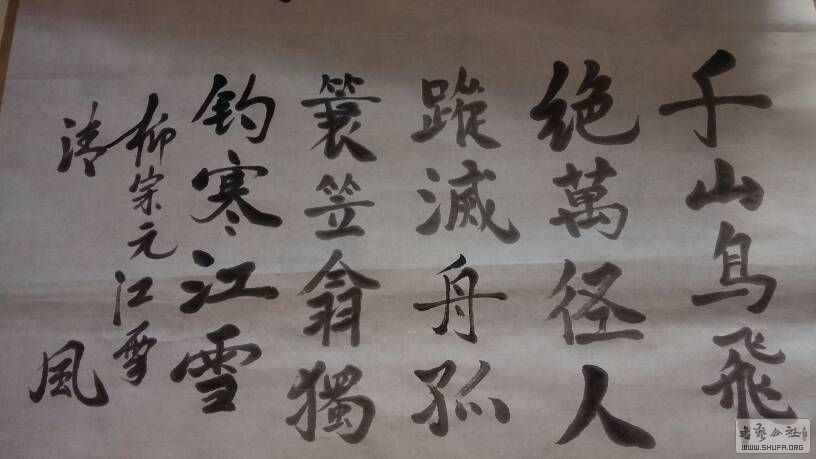 千山鸟飛
绝萬径人
蹤滅舟孤
蓑笠翁獨
钓寒江雪
柳宗元江雪
清風
书艺公社
WWW.SHUFA.ORG